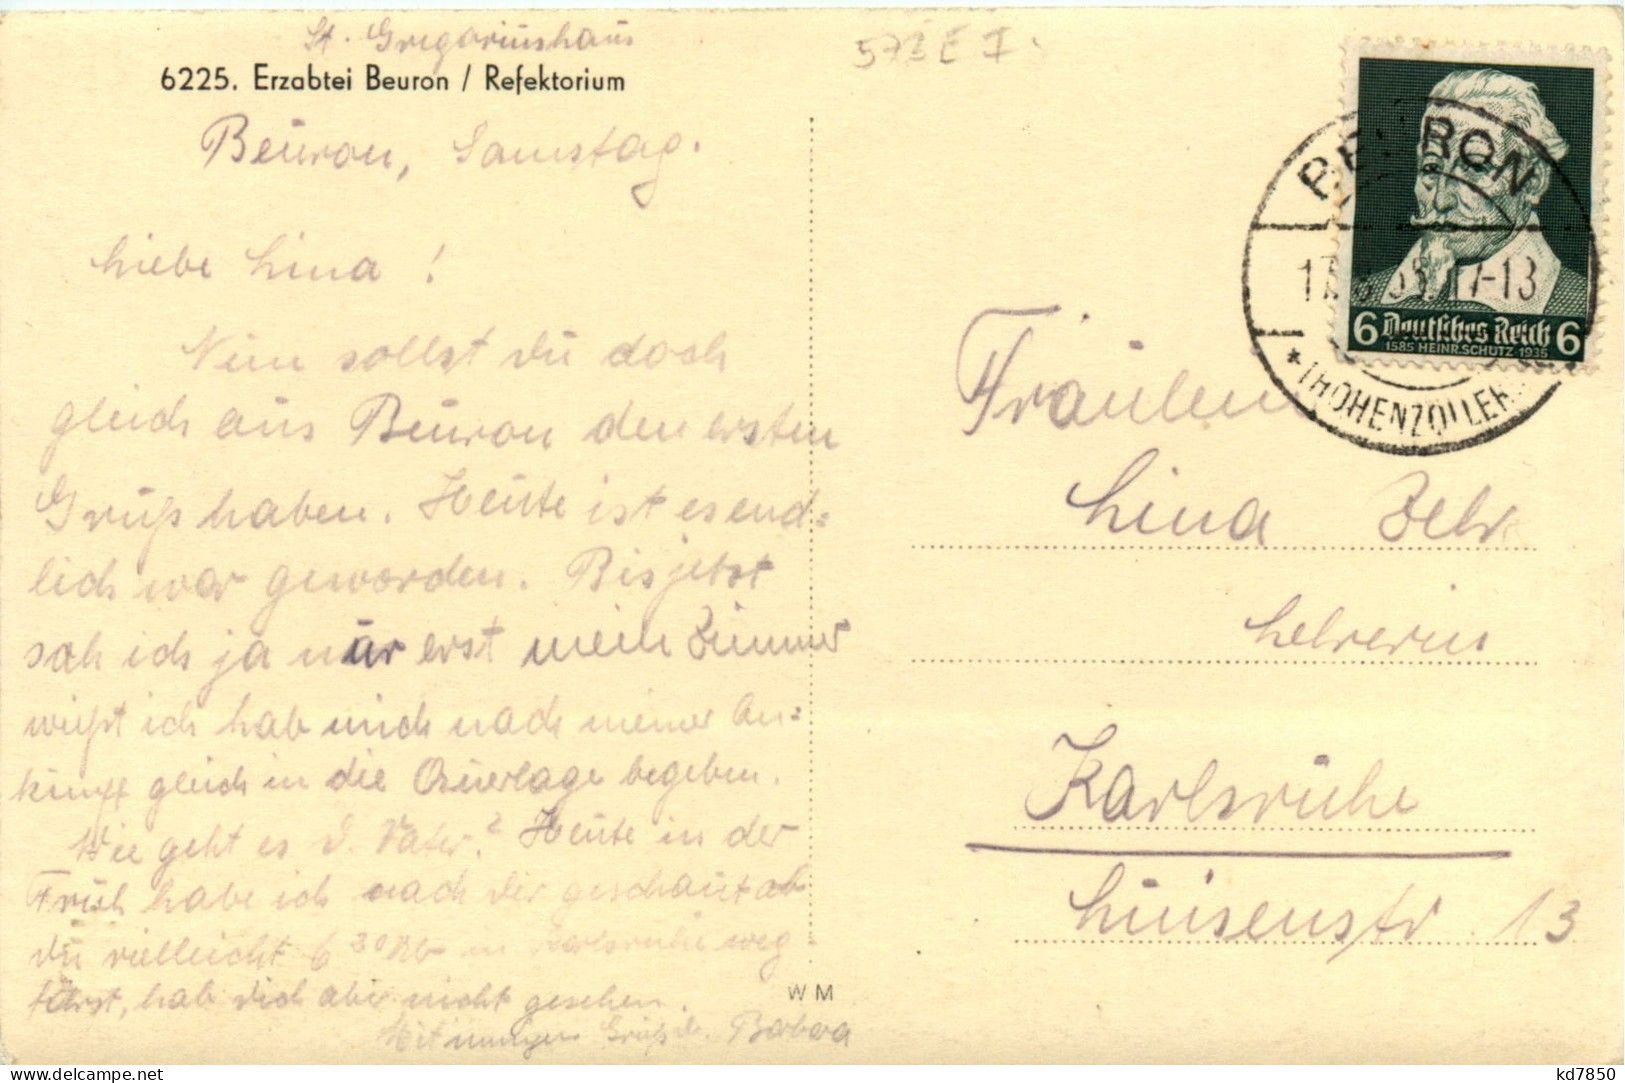 St. Gregoriushaus
6225. Erzabtei Beuron / Refektorium
573 E I
Beuron, Samstag.
Liebe Lina!
Nun sollst du doch
gleich aus Beuron den ersten
Gruß haben. Heute ist es end=
lich war geworden. Bis jetzt
sah ich ja nur erst mein Zimmer
wißt ich hab mich nach meiner An=
kunft gleich in die Querlage begeben.
Wie geht es d. Vater? Heute in der
Früh habe ich nach dir geschaut ob
du vielleicht 6 30 Uhr in Karlsruhe weg=
fährst, hab dich aber nicht gesehen.
Mit innigen Gruß d. Barbara
WM
BEURON
17-13
*(HOHENZOLLERN
6 Deutsches Reich 6
1585 HEINR.SCHÜTZ 1935
Fräulein
Lina Zehr
Lehrerin
Karlsruhe
Luisenstr 13
kd7850